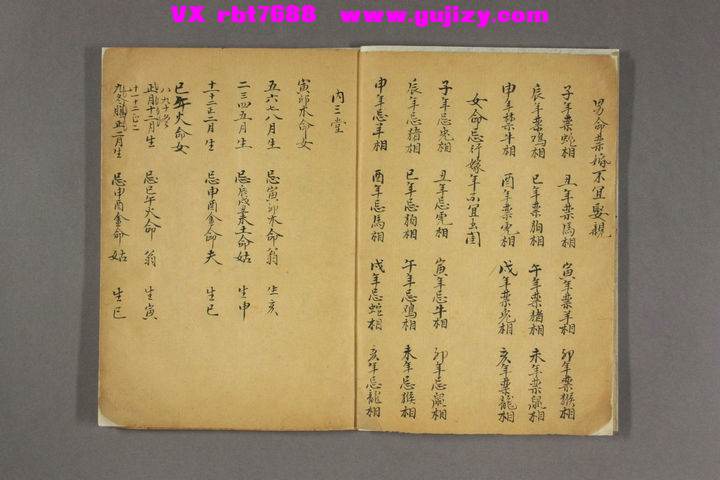 VX rbt7688 www.gujizy.com
男命禁嫁不宜娶親
子年禁蛇相 丑年禁馬相 寅年禁羊相 卯年禁猴相
辰年禁鸡相 巳年禁狗相 午年禁猪相 未年禁鼠相
申年禁牛相 酉年禁虎相 戌年禁兔相 亥年禁龍相
女命忌行嫁年不宜出閣
子年忌兔相 丑年忌虎相 寅年忌牛相 卯年忌鼠相
辰年忌猪相 巳年忌狗相 午年忌鸡相 未年忌猴相
申年忌羊相 酉年忌馬相 戌年忌蛇相 亥年忌龍相
内三堂
寅卯木命女
五六七八月生 忌寅卯木命翁 生亥
二三四五月生 忌辰戌丑未土命姑 生申
十一十二正二月生 忌申酉金命夫 生巳
巳午火命女
正月十二月生 忌巳午火命翁 生寅
九冬腊正二月生 忌申酉金命姑 生巳